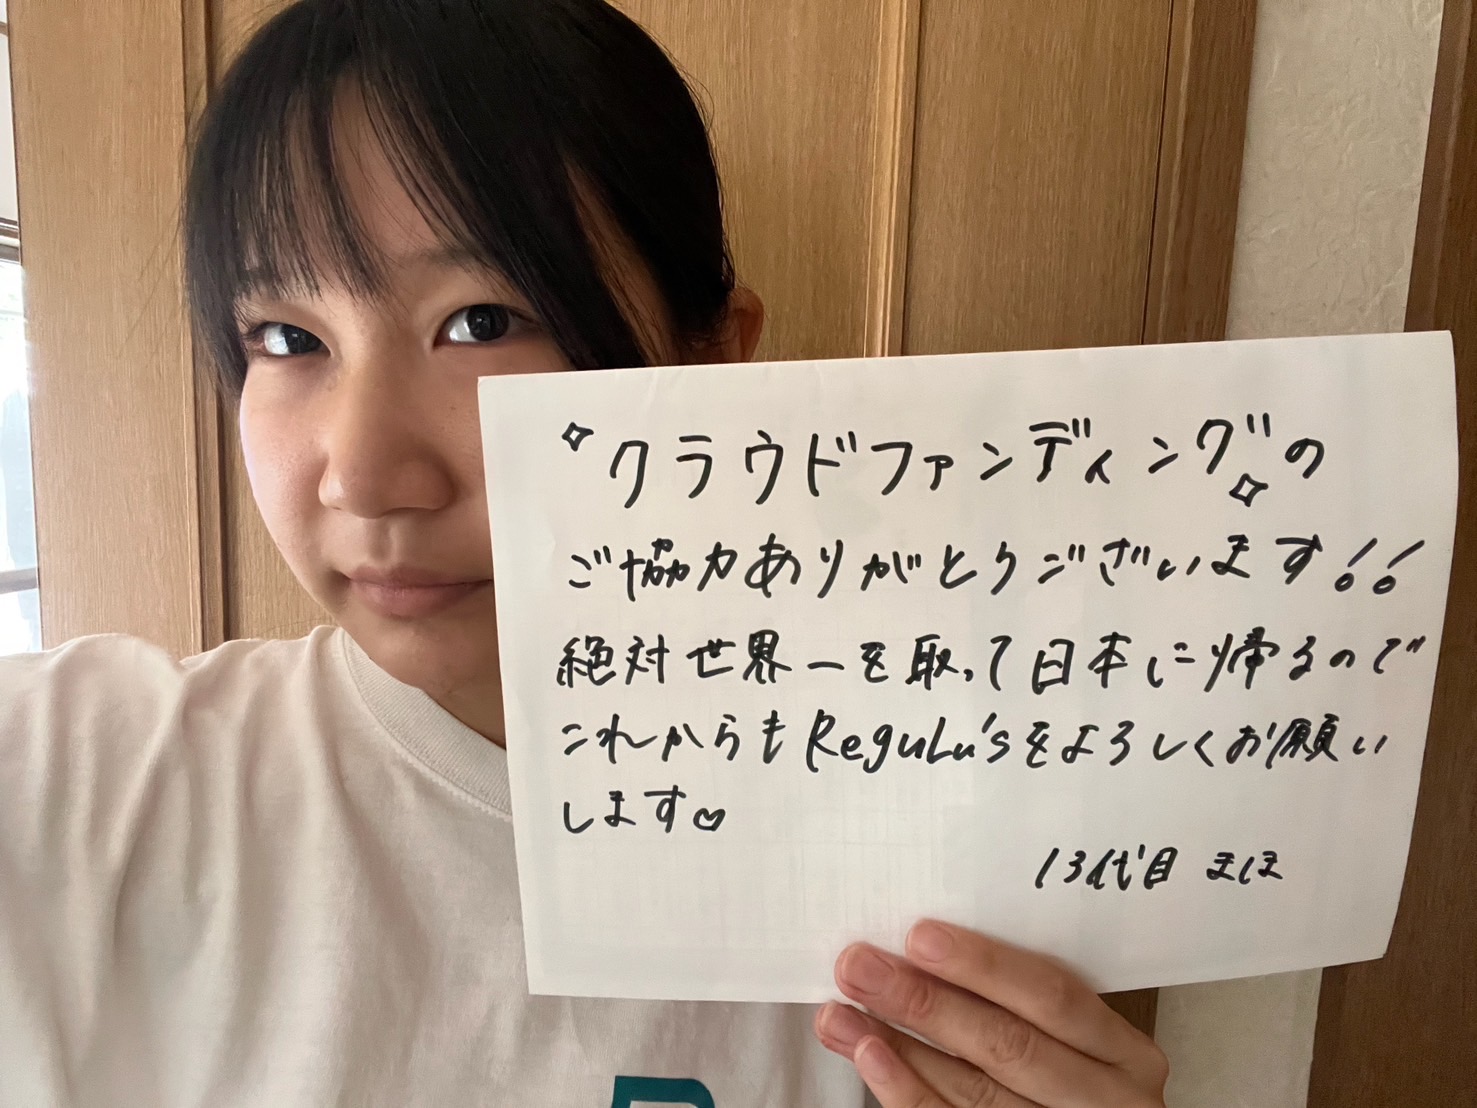 クラウドファンディングの
ご協力ありがとうございます!!
絶対世界一を取って日本に帰るので
これからもReguLu'sをよろしくお願い
します♡
13代目 まほ